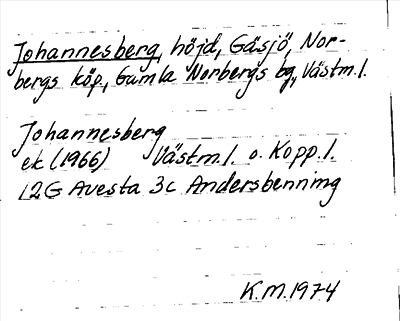 Johannesberg, höjd, Gäsjö, Nor-
bergs köp, Gamla Norbergs bg, Västm.l.
Johannesberg
ek (1966) Västm.l. o. Kopp.l.
12G Avesta 3c Andersbenning
K.M.1974